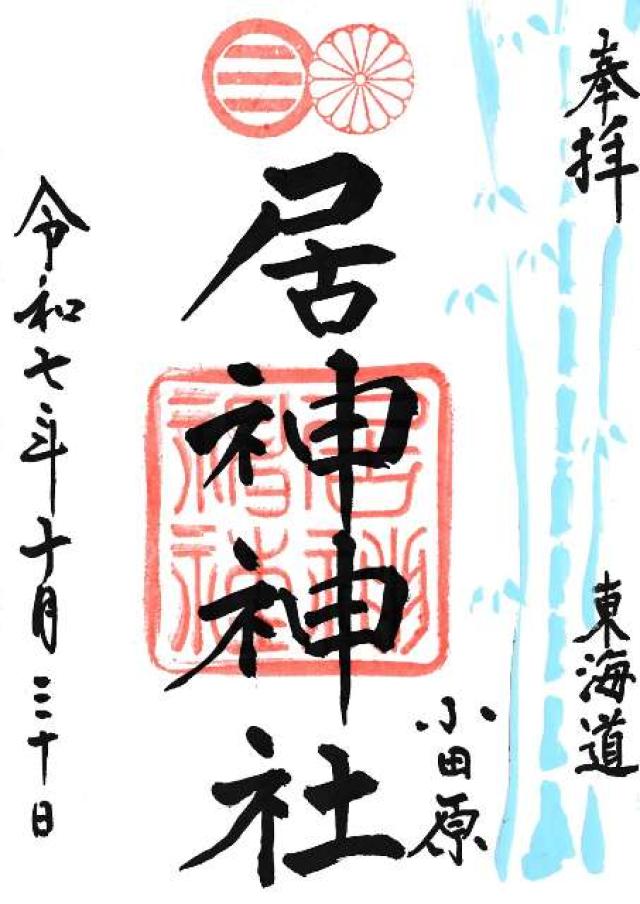 奉拝
東海道
小田原
居神神社
令和七年十月三十日